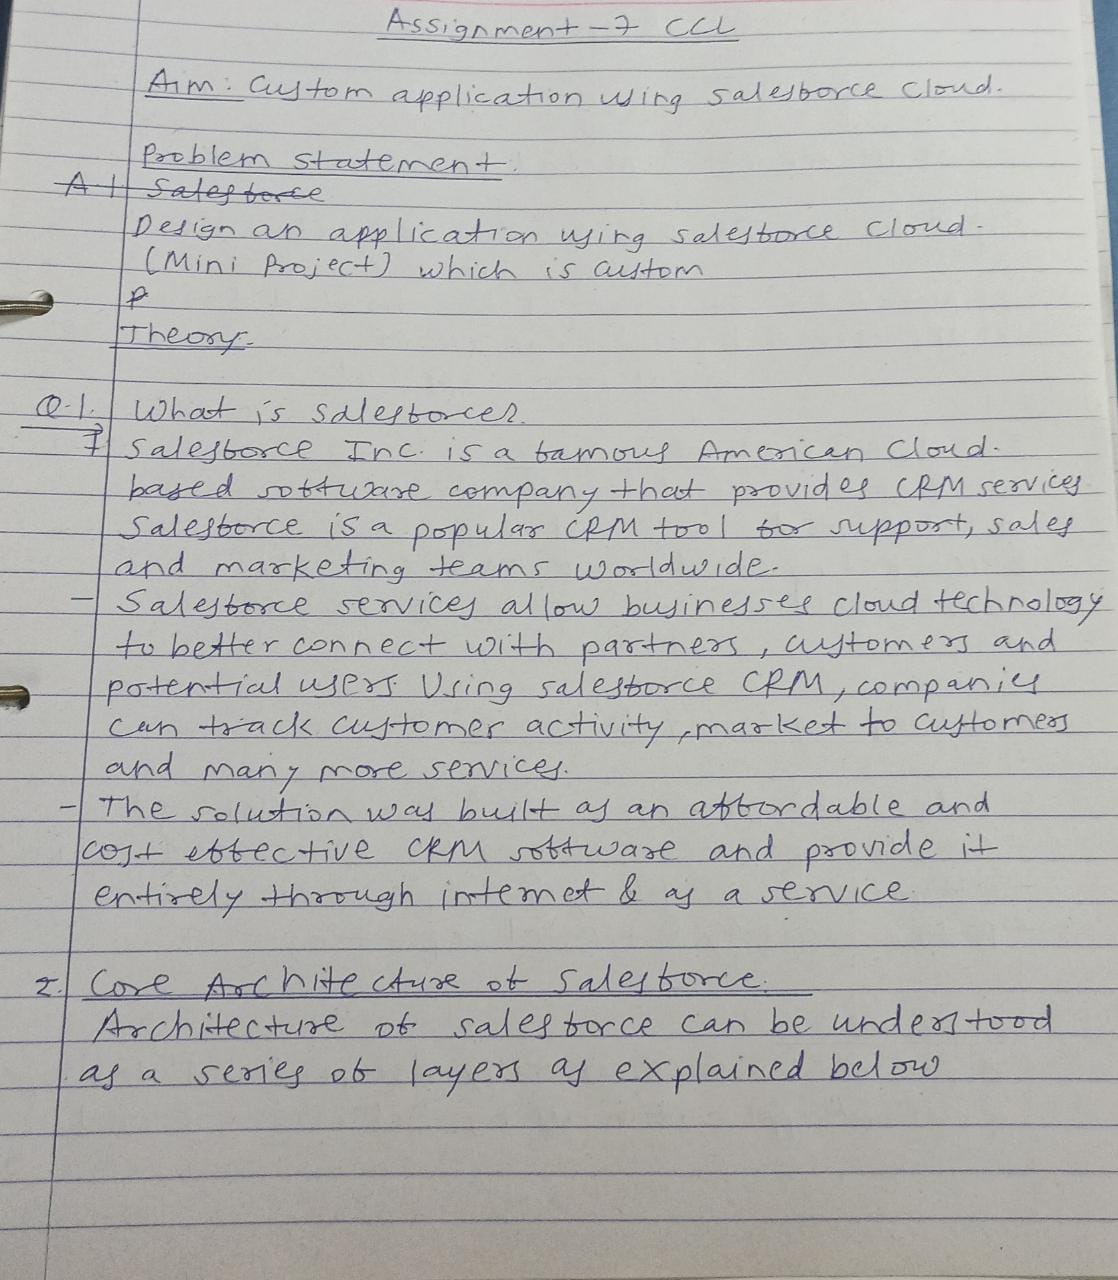 Assignment - 7 CCL
Aim: Custom application using salesforce cloud.
Problem statement.
A1 Salesforce
Design an application using salesforce cloud.
(Mini Project) which is custom
P
Theory.
Q.1. What is salesforce?
→ Salesforce Inc. is a famous American Cloud-
based software company that provides CRM services
Salesforce is a popular CRM tool for support, sales
and marketing teams worldwide.
- Salesforce services allow businesses cloud technology
to better connect with partners, customers and
potential users. Using salesforce CRM, companies
can track customer activity, market to customers
and many more services.
- The solution was built as an affordable and
cost effective CRM software and provide it
entirely through internet & as a service.
2. Core Architecture of Salesforce.
Architecture of salesforce can be understood
as a series of layers as explained below